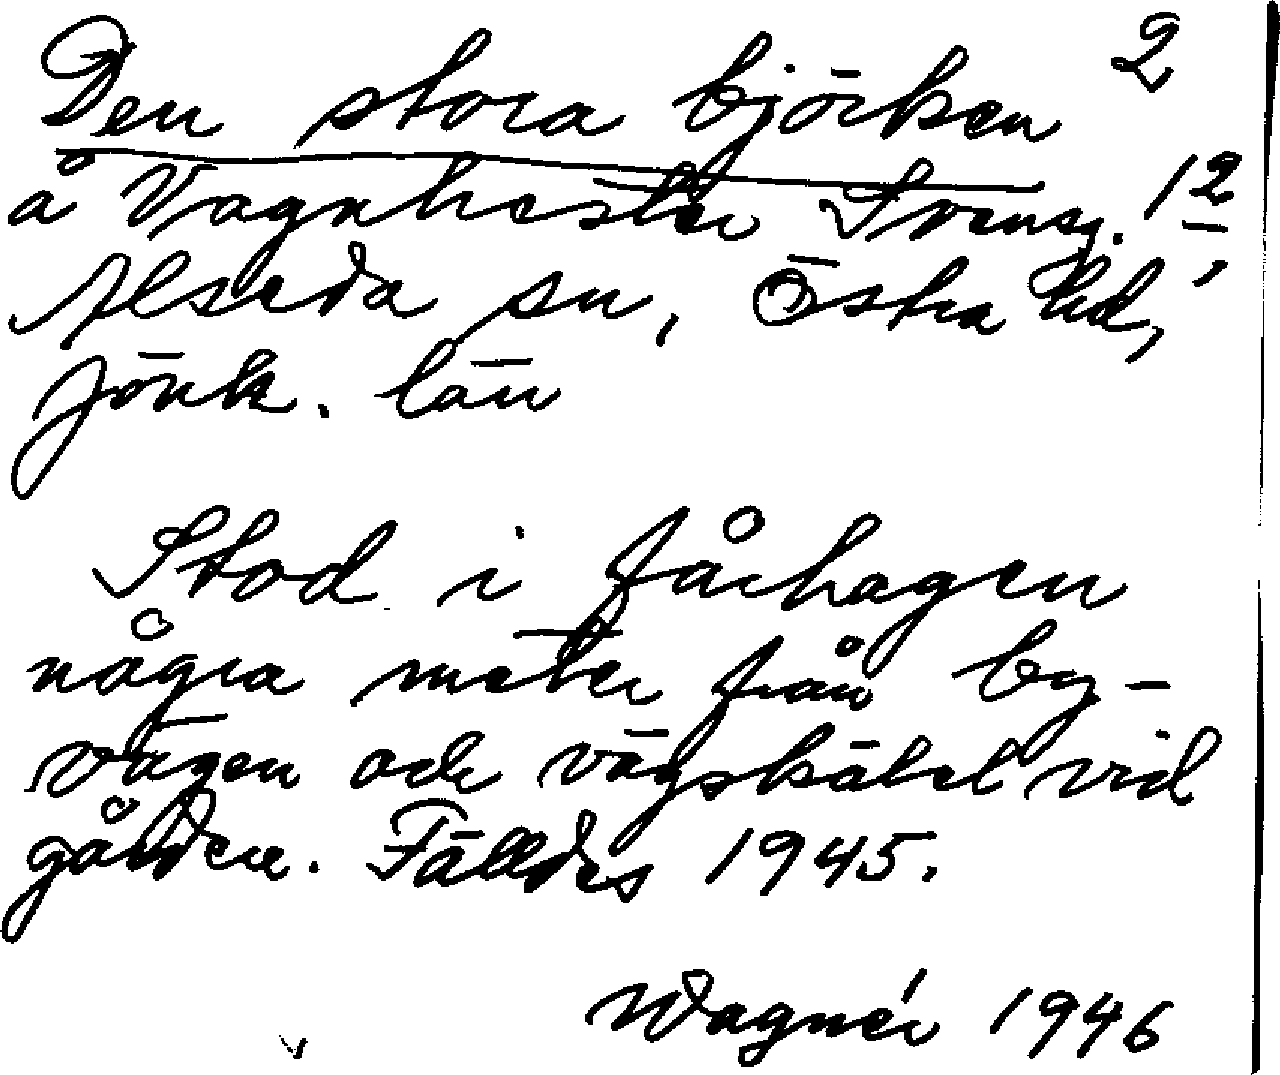 Den stora björken 2
å Vagnhester Svensg. 1 2,
Alseda sn, Östra hd,
Jönk. län
Stod i fårhagen
några meter från by-
vägen och vägskälet vid
gården. Fälldes 1945.
Wagnér 1946